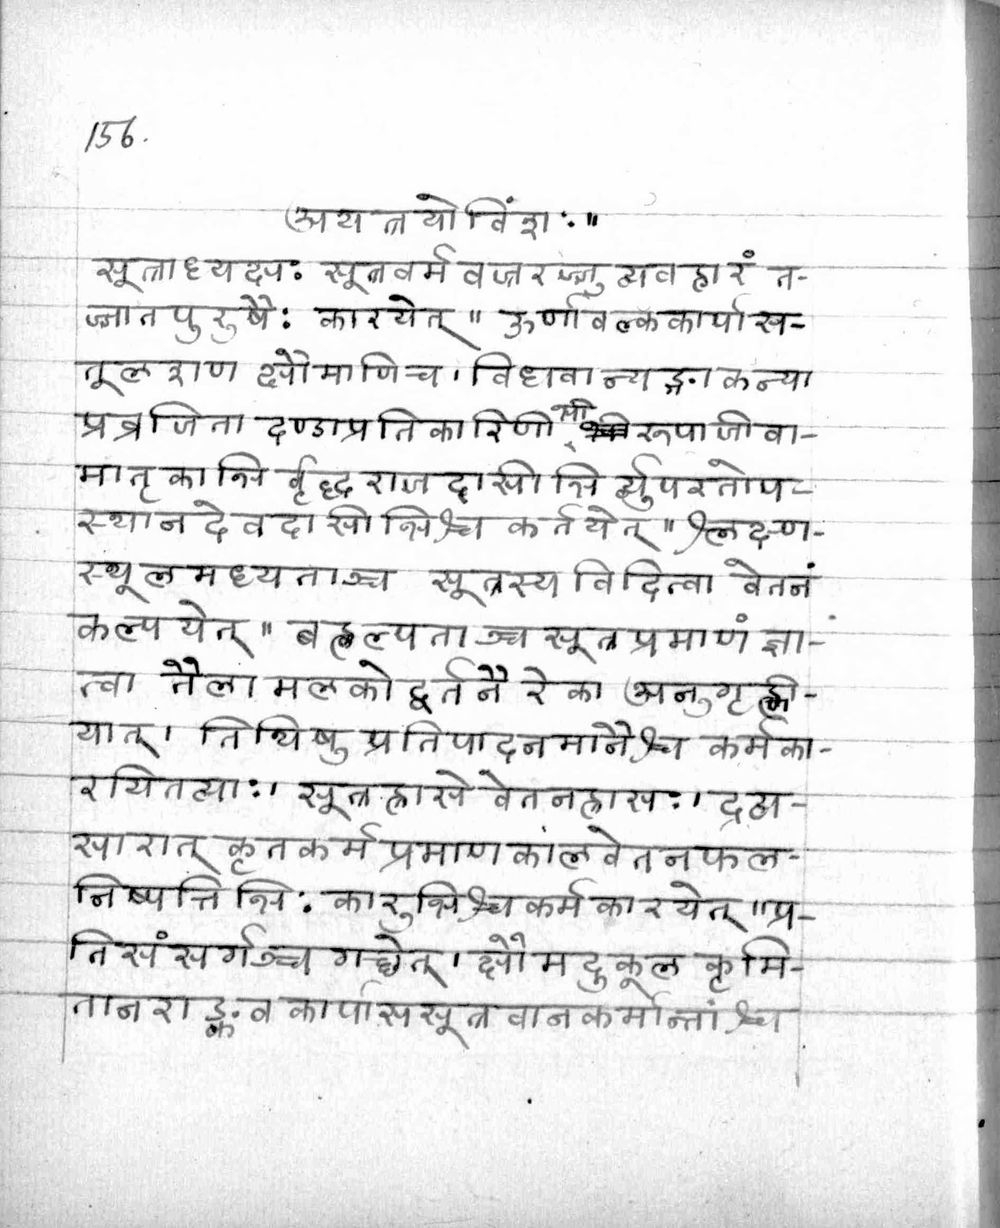 156.
अथ त्रयोविंशः ॥
सूत्राध्यक्षः सूत्रवर्मवज्ररज्जुव्यवहारं त-
ज्जातपुरुषैः कारयेत् ॥ ऊर्णावल्ककार्पास-
तूलशणक्षौमाणि च । विधवान्यङ्गाकन्या
प्रव्रजितादण्डाप्रतिकारिणीभी रूपाजीवा-
मातृकाभिर्वृद्धराजदासीभिर्व्युपरतोप-
स्थानदेवदासीभिश्च कर्तयेत् ॥ श्लक्ष्ण-
स्थूलमध्यताञ्च सूत्रस्य विदित्वा वेतनं
कल्पयेत् ॥ बह्वल्पताञ्च सूत्रप्रमाणं ज्ञा-
त्वा तैलामलकोद्वर्तनैरेका अनुगृह्णी-
यात् । तिथिषु प्रतिपादनमानैश्च कर्म का-
रयितव्याः । सूत्रह्रासे वेतनह्रासः । द्रव्य-
सारात् कृतकर्मप्रमाणकालवेतनफल-
निष्पत्तिभिः कारुभिश्च कर्म कारयेत् ॥ प्र-
तिसंसर्गञ्च गच्छेत् । क्षौमदुकूलकृमि-
तानराङ्कवकार्पाससूत्रवानकर्मान्तांश्च